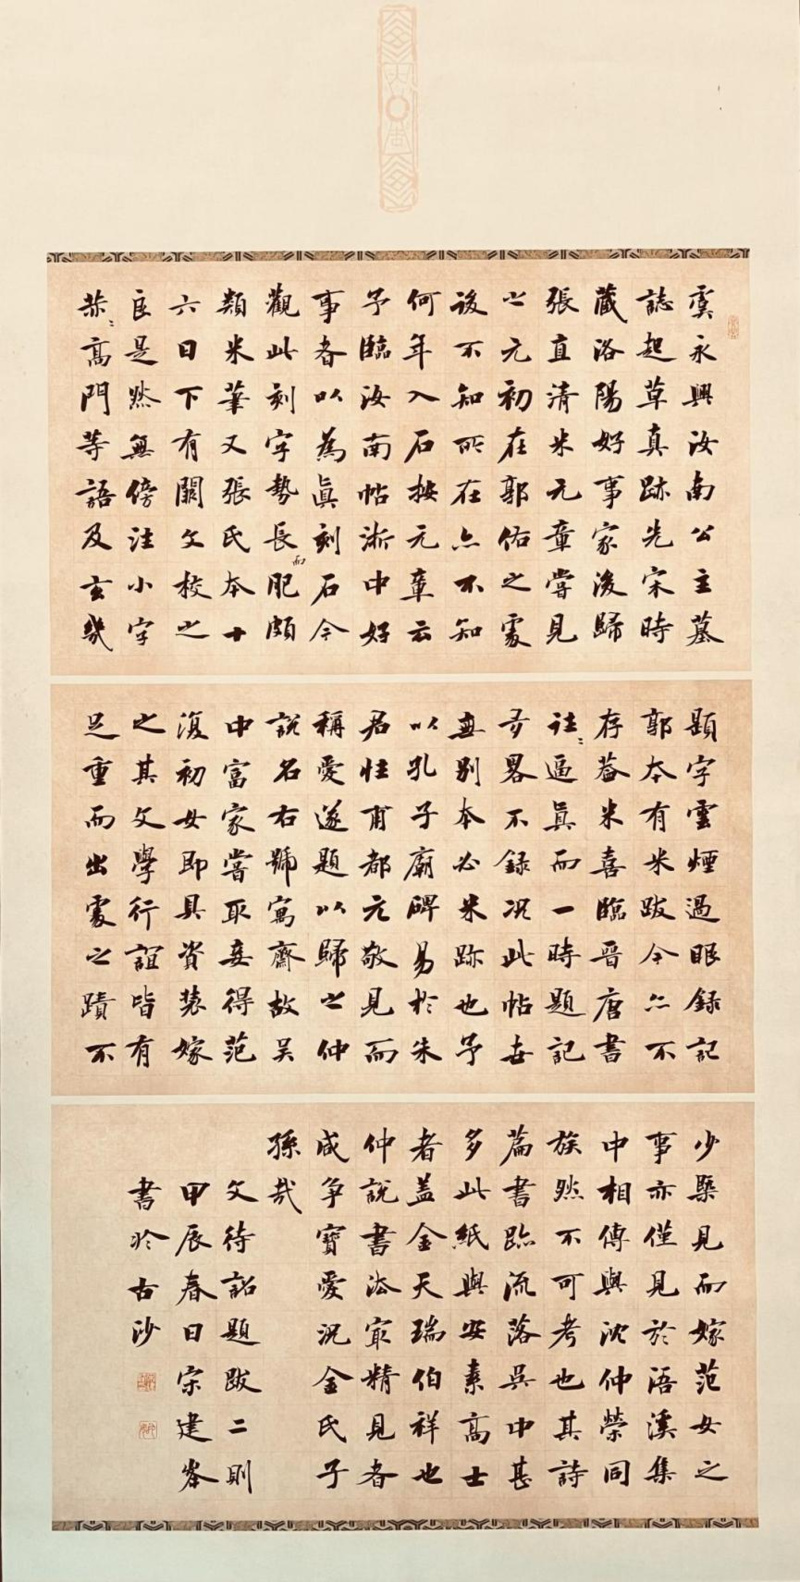 虞永興汝南公主墓
誌起草真跡先宋時
藏洛陽好事家後歸
張直清米元章嘗見
之元初在郭佑之處
後不知所在亦不知
何年入石按元章云
予臨汝南帖浙中好
事者以為真刻石今
觀此刻字勢長而肥頗
類米華又張氏本十
六日下有闕文校之
良是然無傍注小字
恭恭高門等語及玄幾
題字雲煙過眼錄記
郭本有米跋今亦不
存蓋米喜臨晉唐書
往往逼真而一時題記
多畧不錄況此帖世
無別本必米跡也予
以孔子廟碑易於朱
君性甫都元敬見而
稱愛遂題以歸之仲
說名右號寓齋故吳
中富家嘗取妾得范
復初女即具資裝嫁
之其文學行誼皆有
足重而出處之蹟不
少槩見而嫁范女之
事亦僅見於浯溪集
中相傳與沈仲榮同
族然不可考也其詩
萹書跡流落吳中甚
多此紙與安素高士
者蓋金天瑞伯祥也
仲說書法最精見者
咸爭寶愛況金氏子
孫哉
文待詔題跋二則
甲辰春日宋建峯
書於古沙